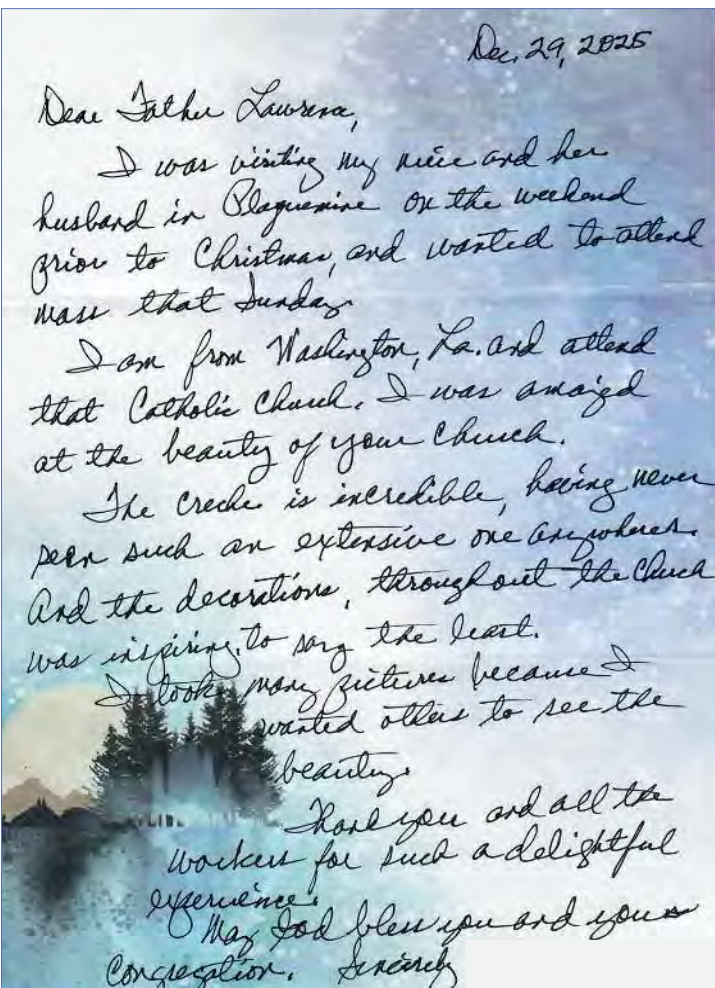 Dec. 29, 2025
Dear Father Lawrence,
I was visiting my niece and her
husband in Plaquemine on the weekend
prior to Christmas, and wanted to attend
mass that Sunday.
I am from Washington, La. and attend
that Catholic Church. I was amazed
at the beauty of your Church.
The creche is incredible, having never
seen such an extensive one anywhere.
And the decorations, throughout the Church
was inspiring, to say the least.
I took many pictures because I
wanted others to see the
beauty.
Thank you and all the
workers for such a delightful
experience.
May God bless you and your
Congregation. Sincerely